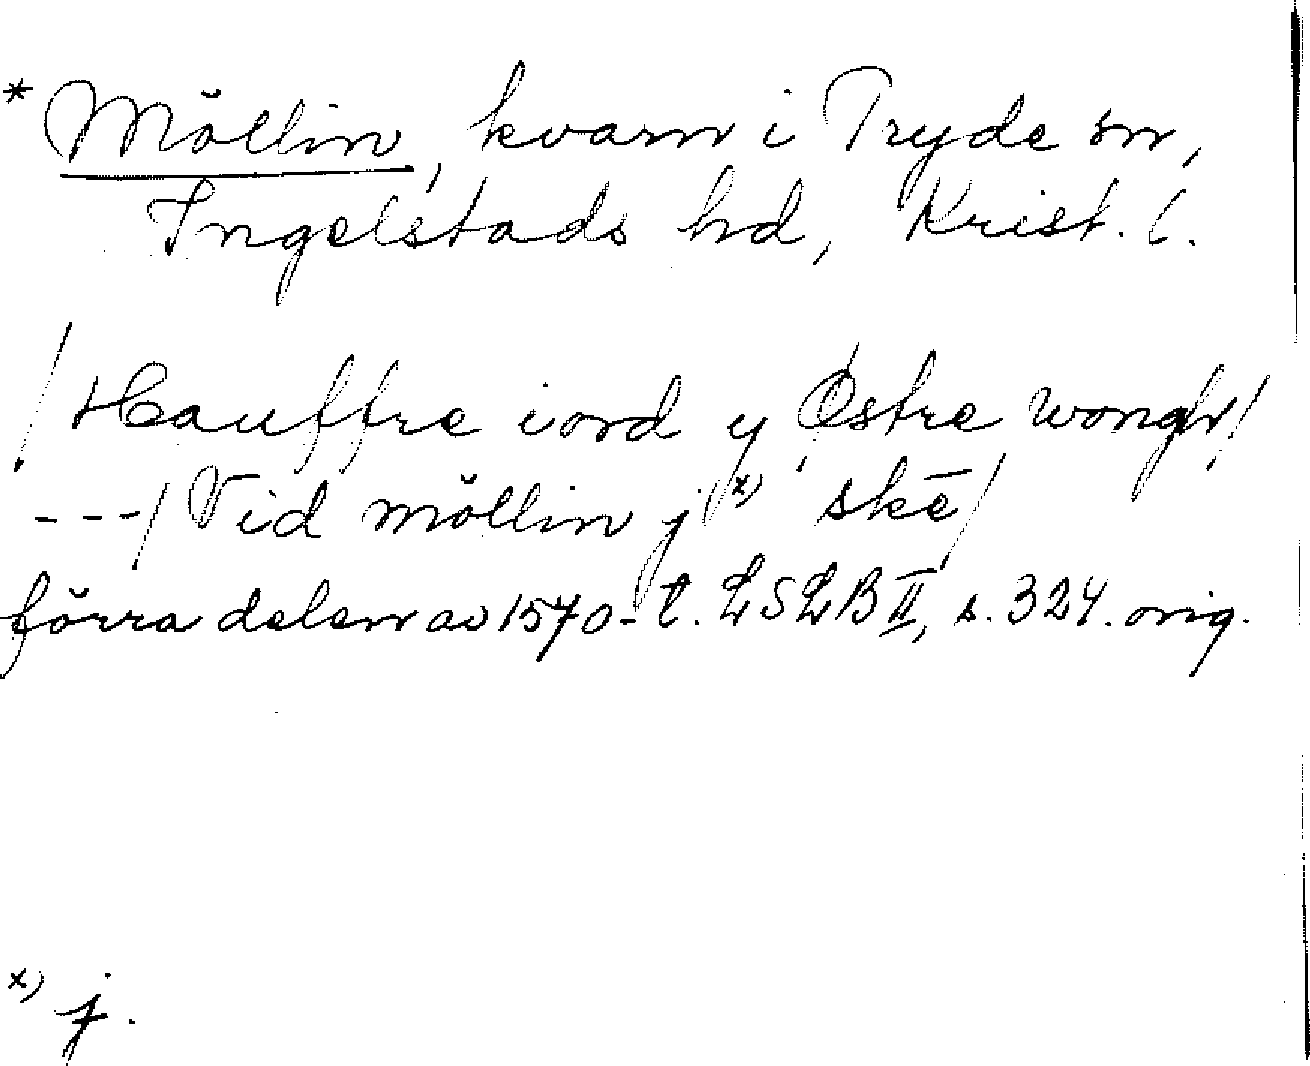 * Möllin, kvarn i Tryde sn,
Ingelstads hd, Krist. l.
/Hauffre iord y Østre wongh/
---/Vid möllin j x) skē/
förra delen av 1570-t. LSLB II, s. 324. orig.
x) j.